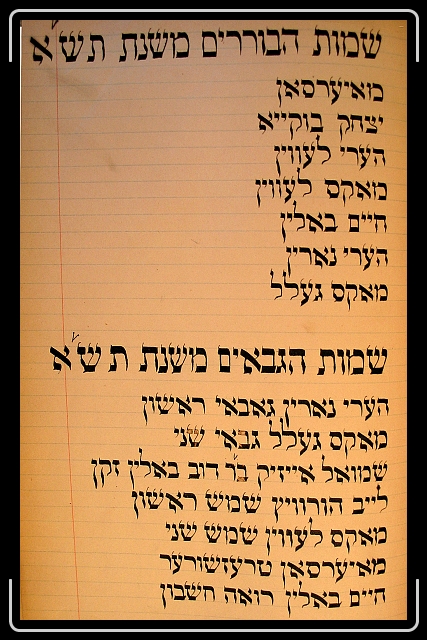 שמות הבוררים משנת תש״א
מאיערסאן
יצחק בוקייא
הערי לעווין
מאקס לעווין
חיים באלין
הערי נארין
מאקס געלל
שמות הגבאים משנת תש״א
הערי נארין גאבאי ראשון
מאקס געלל גבאי שני
שמואל אייזיק בר דוב באלין זקן
לייב הורוויץ שמש ראשון
מאקס לעווין שמש שני
מאיערסאן טרעזשורער
חיים באלין רואה חשבון